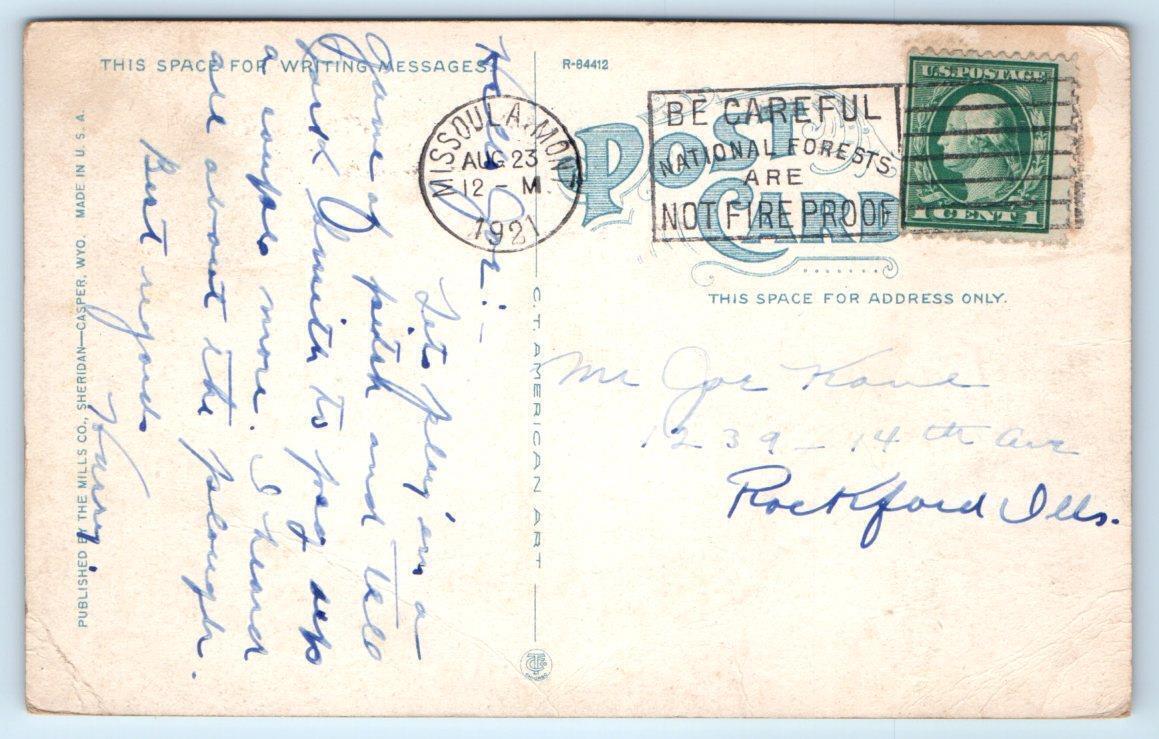 THIS SPACE FOR WRITING MESSAGES.
R-84412
U.S. POSTAGE
1 CENT 1
MISSOULA, MONT
AUG 23
12 - M
1921
BE CAREFUL
NATIONAL FORESTS
ARE
NOT FIRE PROOF
POST
CARD
THIS SPACE FOR ADDRESS ONLY.
Joe:-
Lets play 'em a
game of pitch and tell
Smith to peg up
a couple more. I heard
all about the plough.
Best regards
Harry.
Mr Joe Kane
1239 - 14th Ave
Rockford Ills.
C.T. AMERICAN ART
PUBLISHED BY THE MILLS CO., SHERIDAN—CASPER, WYO. MADE IN U. S. A.